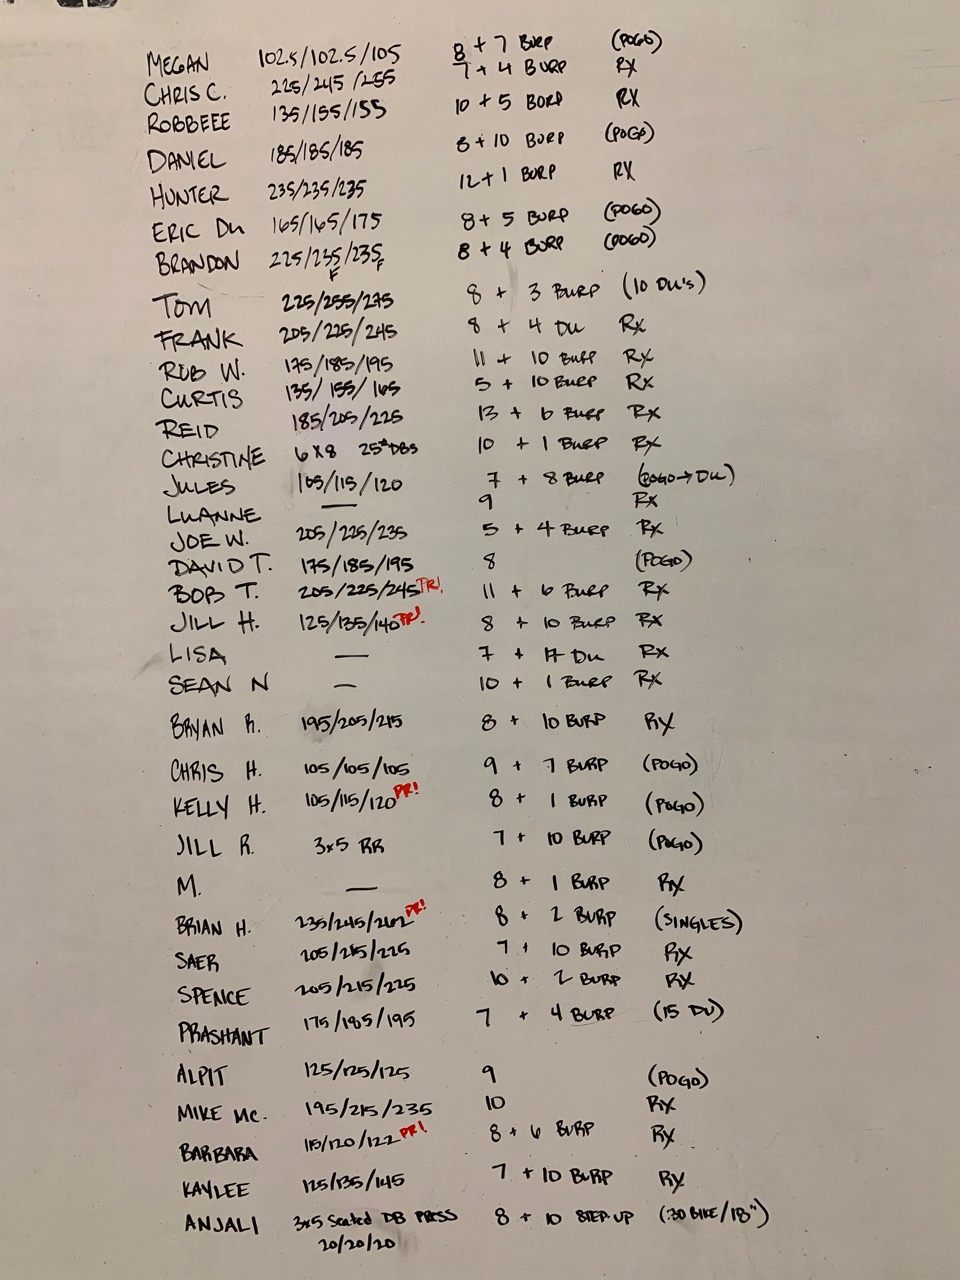 MEGAN 102.5/102.5/105 8 + 7 BURP (POGO)
CHRIS C. 225/245/255 7 + 4 BURP RX
ROBBEEE 135/155/155 10 + 5 BURP RX
DANIEL 185/185/185 8 + 10 BURP (POGO)
HUNTER 235/235/235 12 + 1 BURP RX
ERIC DU 165/165/175 8 + 5 BURP (POGO)
BRANDON 225/235/235 8 + 4 BURP (POGO)
F F
TOM 225/255/275 8 + 3 BURP (10 DU'S)
FRANK 205/225/245 8 + 4 DU RX
ROB W. 175/185/195 11 + 10 BURP RX
CURTIS 135/155/165 5 + 10 BURP RX
REID 185/205/225 13 + 6 BURP RX
CHRISTINE 6x8 25# DBS 10 + 1 BURP RX
JULES 105/115/120 7 + 8 BURP (POGO→DU)
LUANNE — 9 RX
JOE W. 205/225/235 5 + 4 BURP RX
DAVID T. 175/185/195 8 (POGO)
BOB T. 205/225/245 PR! 11 + 6 BURP RX
JILL H. 125/135/140 PR! 8 + 10 BURP RX
LISA — 7 + DU RX
SEAN N — 10 + 1 BURP RX
BRYAN R. 195/205/215 8 + 10 BURP RX
CHRIS H. 105/105/105 9 + 7 BURP (POGO)
KELLY H. 105/115/120 PR! 8 + 1 BURP (POGO)
JILL R. 3x5 RR 7 + 10 BURP (POGO)
M. — 8 + 1 BURP RX
BRIAN H. 235/245/262 PR! 8 + 2 BURP (SINGLES)
SAER 205/215/225 7 + 10 BURP RX
SPENCE 205/215/225 10 + 2 BURP RX
PRASHANT 175/185/195 7 + 4 BURP (15 DU)
ALPIT 125/125/125 9 (POGO)
MIKE MC. 195/215/235 10 RX
BARBARA 115/120/122 PR! 8 + 6 BURP RX
KAYLEE 125/135/145 7 + 10 BURP RX
ANJALI 3x5 Seated DB PRESS 8 + 10 STEP-UP (:30 BIKE/18")
20/20/20